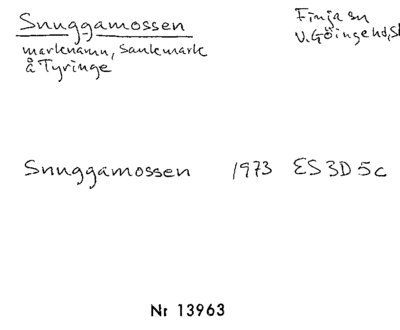 Snuggamossen
Finja sn
marknamn, Sankmark
V. Göinge hd, Sk
å Tyringe
Snuggamossen 1973 ES 3D 5c
Nr 13963